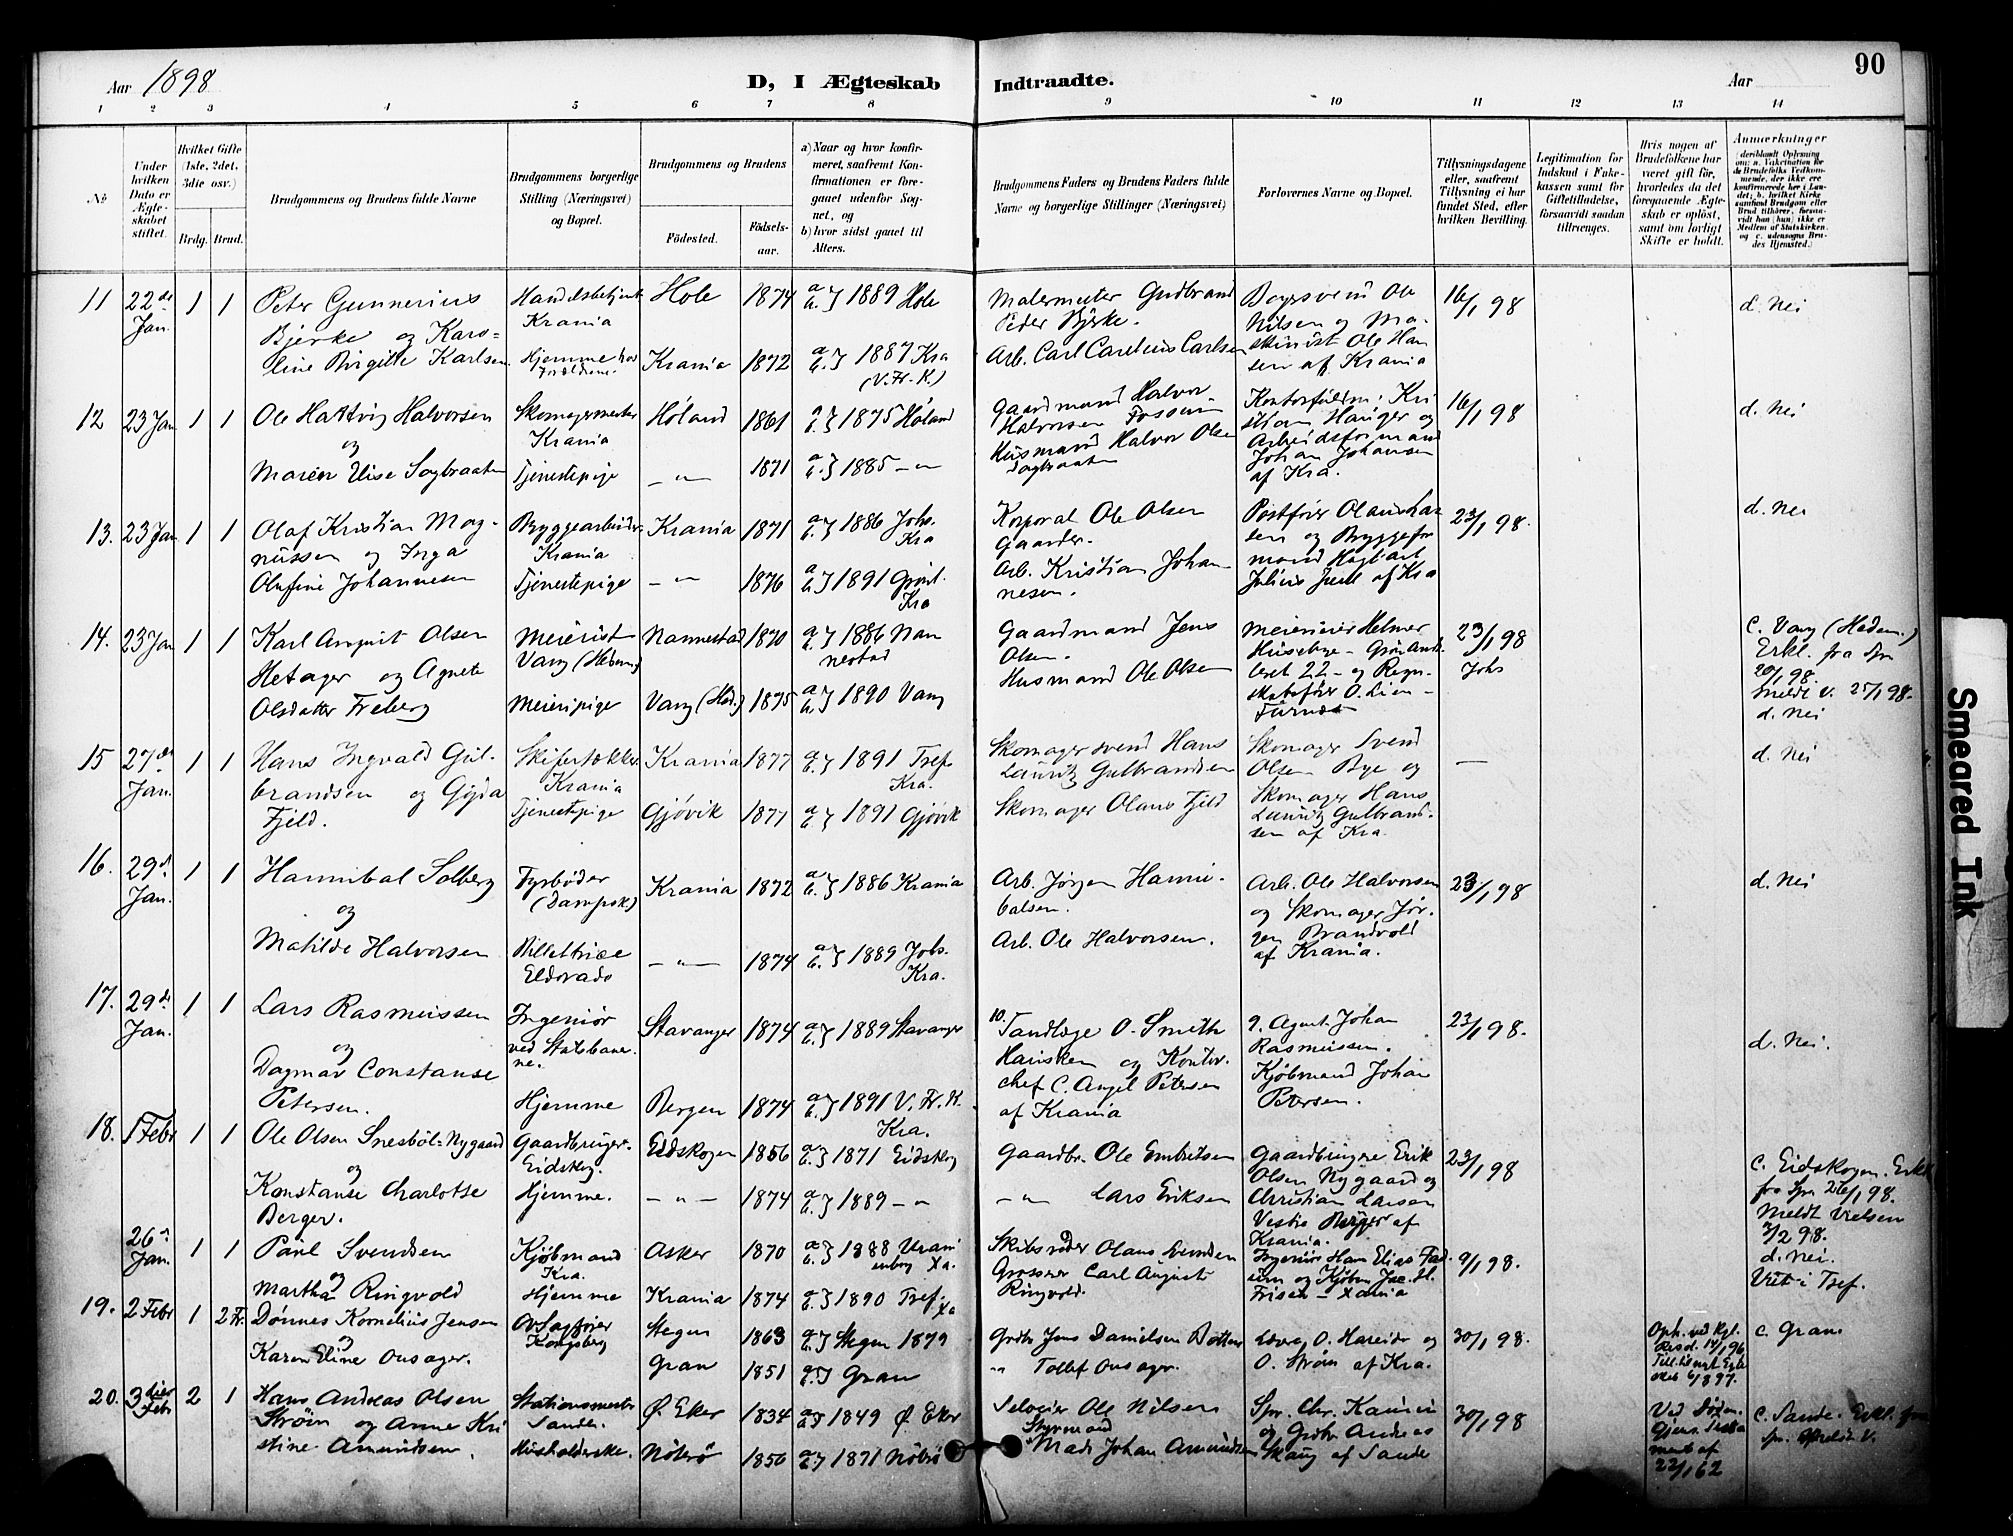 Aar 1898
D, I Ægteskab Indtraadte.
Aar
90
1 2 3 4 5 6 7 8 9 10 11 12 13 14
No
Under hvilken Dato er Ægteskabet stiftet.
Hvilket Gifte (1ste, 2det, 3die osv.)
Brdg. Brud.
Brudgommens og Brudens fulde Navne
Brudgommens borgerlige Stilling (Næringsvei) og Bopæl.
Brudgommens og Brudens
Fødested.
Fødselsaar.
a) Naar og hvor konfirmeret, saafremt Konfirmationen er foregaaet udenfor Sognet, og
b) hvor sidst gaaet til Alters.
Brudgommens Faders og Brudens Faders fulde Navne og borgerlige Stillinger (Næringsvei)
Forlovernes Navne og Bopæl.
Tillysningsdagene eller, saafremt Tillysning ei har fundet Sted, efter hvilken Bevilling.
Legitimation for Indskud i Enkekassen samt for Giftetilladelse, forsaavidt saadan tiltrænges.
Hvis nogen af Brudefolkene har været gift før, hvorledes da det foregaaende Ægteskab er opløst, samt om lovligt Skifte er holdt.
Anmærkninger
11 22de Jan. 1 1 Peter Gunnerius Bjerke og Karoline Birgitte Karlsen.
Handelsbetjent Krania Hole 1874 a b } 1889 Hole
Hjemme hos Forældrene. Krania 1872 a b } 1887 Kra (V. Fr. K.)
Malermester Gudbrand Peder Bjerke.
Arb. Carl Carelius Carlsen
Ole Nilsen og Maskinist Ole Hansen af Krania
16/1 98
d. Nei
12 23 Jan 1 1 Ole Hartvig Halvorsen og Maren Elise Sagbraaten
Skomagermester Krania Høland 1861 a b } 1875 Høland
Tjenestepige — " — 1871 a b } 1885 — "
Gaardmand Halvor Halvorsen Fossum
Husmand Halvor Olsen Sagbraaten
Kristian Hauger og Arbeidsformand Johan Johansen af Kra.
16/1 98
d. Nei
13. 23 Jan 1 1 Olaf Kristian Magnussen og Inga Olufine Johannesen
Byggearbeider Krania Krania 1871 a b } 1886 Johs. Kra
Tjenestepige — " 1876 a b } 1891 Grønl. Kra
Korporal Ole Olsen Gaarder.
Arb. Kristian Johannesen.
Postfører Olaus Larsen og Byggeformand Hagbart Julius Juell af Kra
23/1 98.
d. Nei
14. 23 Jan 1 1 Karl August Olsen Hetager og Agnete Olsdatter Freberg
Meierist Vang (Hedem.) Nannestad 1870 a b } 1886 Nannestad
Meieripige Vang (Hed.) 1875 a b } 1890 Vang
Gaardmand Jens Olsen.
Husmand Ole Olsen
Helmer Husebye - 22 - og Regnskabsfører O. Lien - Furnes
23/1 98 Johs
c. Vang (Hedem.) Erkl. fra Spr 20/1 98. Meldt V. 25/1 98. d. Nei
15 27de Jan. 1 1 Hans Ingvald Gulbrandsen og Gyda Fjeld.
Skifertækker Krania Krania 1877 a b } 1891 Tref. Kra.
Tjenestepige Gjøvik 1877 a b } 1891 Gjøvik
Skomagersvend Hans Lauritz Gulbrandsen
Skomager Olaus Fjeld
Skomager Svend Olsen Bye og Skomager Hans Lauritz Gulbrandsen af Kra.
—
d. Nei
16. 29d Jan. 1 1 Hannibal Solberg og Matilde Halvorsen
Fyrbøder (Dampsk) Krania 1872 a b } 1886 Krania
Billettrice Eldorado — " — 1874 a b } 1889 Johs. Kra.
Arb. Jørgen Hannibalsen.
Arb. Ole Halvorsen.
Arb. Ole Halvorsen og Skomager Jørgen Brandvold af Krania.
23/1 98
d. Nei
17. 29de Jan. 1 1 Lars Rasmussen og Dagmar Constanse Petersen.
Ingeniør ved Statsbanerne. Stavanger 1874 a b } 1889 Stavanger
Hjemme Bergen 1874 a b } 1891 V. Fr. K. Kra.
10. Tandlæge O. Smith Housken og Kontorchef C. Angel Petersen af Krania
9. Agent Johan Rasmussen. Kjøbmand Johan Petersen.
23/1 98.
d. Nei.
18. 1 Febr 1 1 Ole Olsen Snesbøl-Nygaard og Konstanse Charlotte Berger.
Gaardbruger. Eidskog. Eidskogen 1856 a b } 1871 Eidskog
Hjemme. — " — 1874 a b } 1889 — "
Gaardbr. Ole Embretsen
— " Lars Eriksen
Gaardbrugere Erik Olsen Nygaard og Christian Larsen Vestre Berger af Krania.
23/1 98
c. Eidskogen. Erkl. fra Spr. 26/1 98. Meldt Vielsen 3/2 98. d. Nei.
26d Jan. 1 1 Paul Svendsen og Martha Ringvold
Kjøbmand Kra. Asker 1870 a b } 1888 Uranienborg Xa.
Hjemme Krania 1874 a b } 1890 Tref. Xa
Skibsreder Olaus Svendsen
Grosserer Carl August Ringvold.
Ingeniør Hans Elias og Kjøbm. Jac. H. Frisch - Xania
9/1 98.
Viet i Tref.
19. 2 Febr 1 2 Fr. Dønnes Kornelius Jensen og Karen Eline Onsager.
Kongsberg Stegen 1863 a b } Stegen 1879
Gran 1851 a b } Gran
Grdbr Jens Danielsen
" Tollef Onsager.
O. Hareide og O. Strøm af Kra.
30/1 98.
Oph. ved Kgl. Resd. 14/1 96
c. Gran.
20. 3die Febr 2 1 Hans Andreas Olsen Strøm og Anne Kristine Amundsen.
Stationsmester Sande. Ø. Eker 1834 a b } 1849 Ø. Eker
Husholderske. Nøterø 1856 a b } 1871 Nøterø
Selveier Ole Nilsen
Styrmand Mads Johan Amundsen
Spr. Chr. og Grdbr Andreas Skaug af Sande
30/1 98
Ved Døden. 22/1 62
c. Sande. Erkl. fra spr.
Smeared Ink